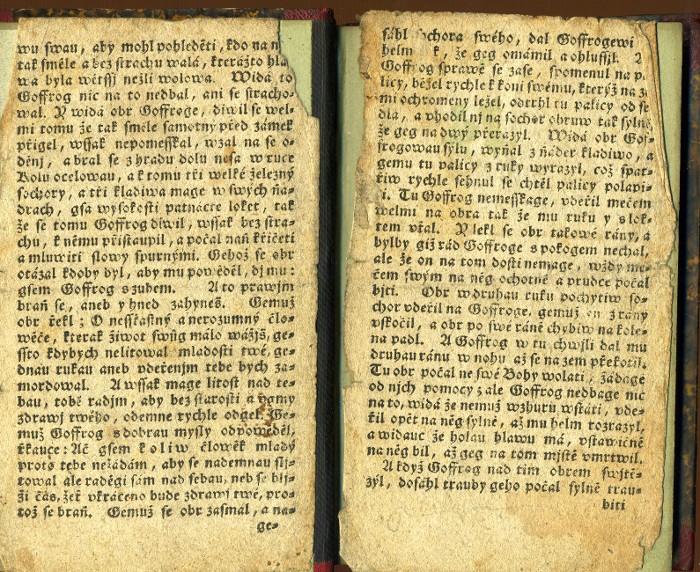 wu swau, aby mohl pohleděti, kdo na n
tak směle a bez strachu walá, kterážto hla
wa byla wětssj nežli wolowa. Widá to
Goffrog nic na to nedbal, ani se stracho-
wal. Y widá obr Goffroge, diwil se wel-
mi tomu že tak směle samotný před zámek
přigel, wssak nepomesskal, wzal na se o-
děnj, a bral se z hradu dolu nesa w ruce
Kolu ocelowau, a k tomu tři welké železný
sochory, a tři kladiwa mage w swých ňa-
drach, gsa wysokosti patnácte loket, tak
že se tomu Goffrog diwil, wssak bez stra-
chu, k němu přistaupil, a počal naň křičeti
a mluwiti slowy spurnými. Gehož se obr
otázal kdoby byl, aby mu powěděl, dj mu:
gsem Goffrog s zubem. A to prawjm
braň se, aneb yhned zahyneš. Gemuž
obr řekl: O nessťastný a nerozumný člo-
wěče, kterak žiwot swůg málo wážjš, ge-
ssto kdybych nelitowal mladosti twé, ge-
dnau rukau aneb vdeřenjm tebe bych za-
mordowal. A wssak mage litost nad te-
bau, tobě radjm, aby bez starosti a
zdrawj twého, odemne rychle odgel. Ge-
muž Goffrog s dobrau mysly odpowěděl,
řkauce: Ač gsem koliw člověk mladý
proto tebe nežádám, aby se nademnau slj-
towal ale raděgi sám nad sebau, neb se blj-
žj čas, žeť vkráceno bude zdrawj twé, pro-
tož se braň. Gemuž se obr zasmál, a na-
ge-
sáhl sochora swého, dal Goffrogewi
helm k, že geg omámil a ohlussil. A
Goffrog sprawě se zase, spomenul na p
licy, běžel rychle k koni swému, kterýž na z
mi ochromený ležel, odtrhl tu palicy od se
dla, a vhodil nj na sochor obruw tak sylně
že geg na dwý přerazyl. Widá obr Gof-
frogowau sylu, wyňal z ňáder kladiwo, a
gemu tu palicy z ruky wyrazyl, což spat-
řiw rychle sehnul se chtěl palicy polapi-
i. Tu Goffrog nemesskage, vdeřil mečem
welmi na obra tak že mu ruku y s lok-
tem vťal. Y lekl se obr takowé rány, a
bylby giž rád Goffroge s pokogem nechal,
ale že on na tom dosti nemage, wždy me-
čem swým na něg ochotně a prudce počal
bjti. Obr w druhau ruku pochytiw so-
chor vdeřil na Goffroge, gemuž on z rány
vskočil, a obr po swé ráně chybiw na kole-
na padl. A Goffrog w tu chwjli dal mu
druhau ránu w nohu až se na zem překotil.
Tu obr počal ne swé Bohy wolati, žádage
od njch pomocy z ale Goffrog nedbage nic
na to, widá že nemuž wzhuru wstáti, vde-
řil opět na něg sylně, až mu helm rozrazyl,
a widauc že holau hlawu má, vstawičně
na něg bil, až geg na tom mjstě vmrtwil.
A když Goffrog nad tim obrem swjtě-
zyl, dosáhl trauby geho počal sylně trau-
biti